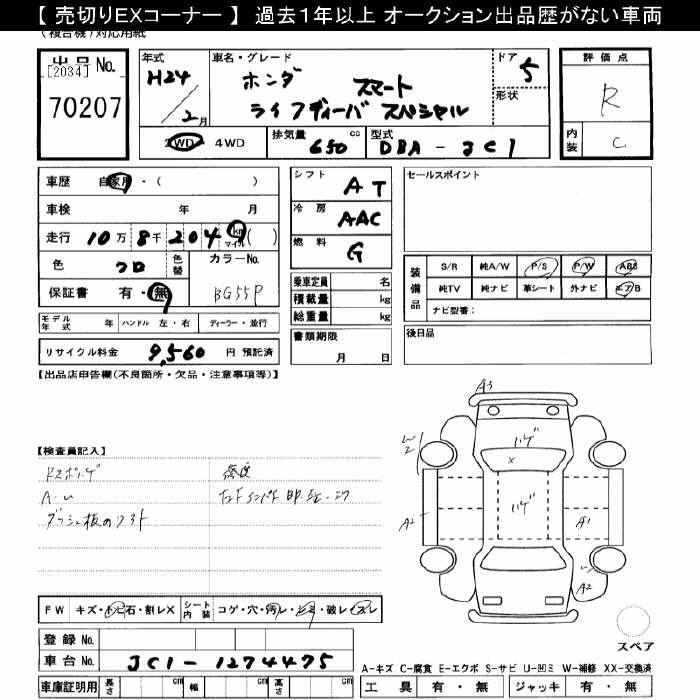 【 売切りEXコーナー 】 過去１年以上 オークション出品歴がない車両
(複合機)対応用紙
出品 No.
[2034]
70207
年式
H24
／2月
車名・グレード
ホンダ スマート
ライフディーバ スペシャル
ドア
5
形状
2WD ・ 4WD
排気量
650 cc
型式
DBA - JC1
評価点
R
内装
C
車歴 自家用・( )
車検 年 月
走行 10万 8千 204 km マイル ( )
色 クロ 色替
カラーNo.
BG55P
保証書 有・無
モデル年式 年 ハンドル 左・右 ディーラー・並行
リサイクル料金 9,560 円 預託済
シフト AT
冷房 AAC
燃料 G
乗車定員 名
積載量 kg
総重量 kg
書類期限
月 日
セールスポイント
装備品
S/R 純A/W P/S P/W ABS
純TV 純ナビ 革シート 外ナビ エアB
ナビ型番：
後日品
【出品店申告欄(不良箇所・欠品・注意事項等)】
【検査員記入】
A-U
A3
ハゲ
W2
X
ハゲ
A2
A1
A2
FW キズ・トビ石・割レX
シート内装 コゲ・穴・汚レ・シミ・破レ・スレ
登録 No.
車台 No. JC1-1274475
車庫証明用 長さ cm 幅 cm 高さ cm
スペア
A-キズ C-腐食 E-エクボ S-サビ U-凹ミ W-補修 XX-交換済
工具 有・無 ジャッキ 有・無